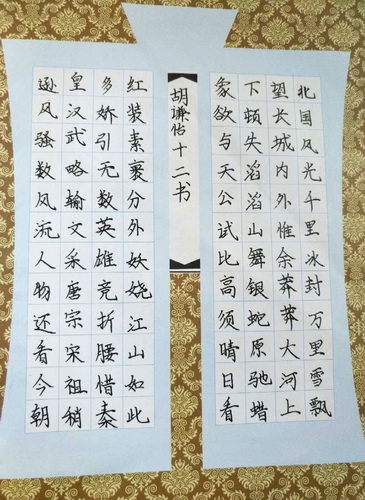 北国风光千里冰封万里雪飘
望长城内外惟余莽莽大河上
下顿失滔滔山舞银蛇原驰蜡
象欲与天公试比高须晴日看
胡谦十二书
红装素裹分外妖娆江山如此
多娇引无数英雄竞折腰惜秦
皇汉武略输文采唐宗宋祖稍
逊风骚数风流人物还看今朝